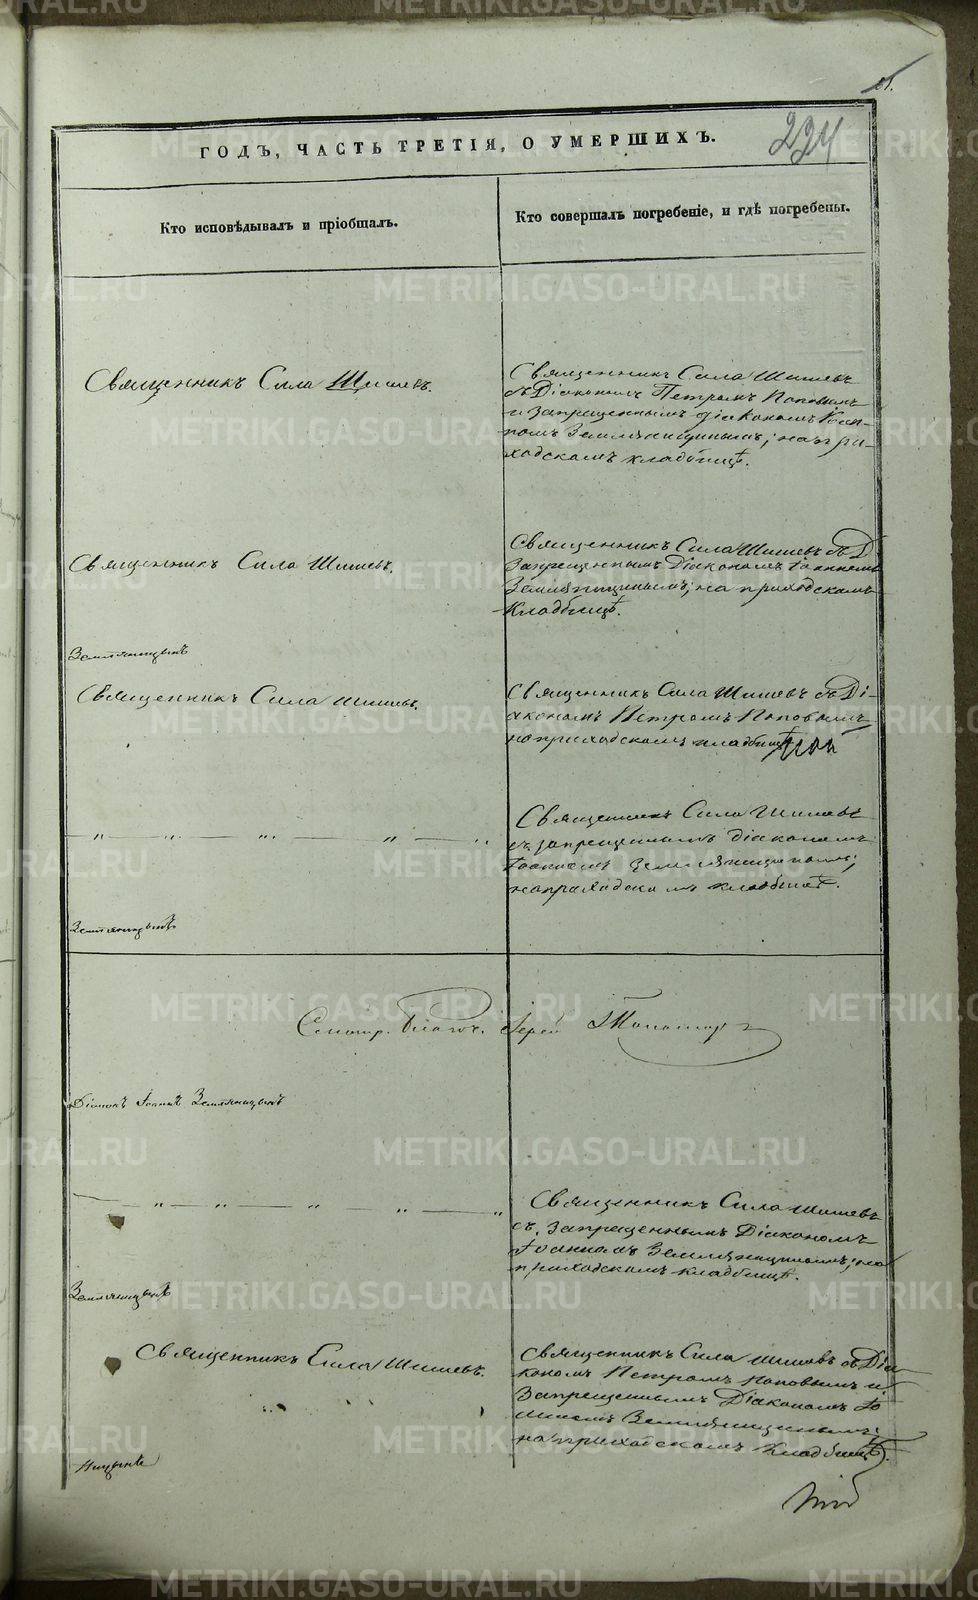 224
ГОДЪ, ЧАСТЬ ТРЕТІЯ, О УМЕРШИХЪ.
Кто исповѣдывалъ и пріобщалъ.
Кто совершалъ погребеніе, и гдѣ погребены.
Священникъ Сила Шишевъ.
Священникъ Сила Шишевъ
съ Діакономъ Петромъ Поповымъ
и запрещеннымъ діакономъ Іоан-
номъ Земляницинымъ; на при-
ходскомъ кладбищѣ.
Священникъ Сила Шишевъ.
Священникъ Сила Шишевъ съ
Запрещеннымъ Діакономъ Іоанномъ
Земляницинымъ; на приходскомъ
Кладбищѣ.
Земляницынъ
Священникъ Сила Шишевъ.
Священникъ Сила Шишевъ съ Ді-
акономъ Петромъ Поповымъ
на приходскомъ кладбищѣ
Священникъ Сила Шишевъ
съ запрещеннымъ діакономъ
Іоанномъ Земляницинымъ;
на приходскомъ кладбищѣ.
Земляницынъ
Діаконъ Іоаннъ Земляницынъ
Священникъ Сила Шишевъ
съ запрещеннымъ Діакономъ
Іоанномъ Земляницинымъ; на
приходскомъ кладбищѣ.
Земляницынъ
Священникъ Сила Шишевъ.
Священникъ Сила Шишевъ съ Діа-
кономъ Петромъ Поповымъ и
Запрещеннымъ Діакономъ Іо-
анномъ Земляницинымъ;
на приходскомъ Кладбищѣ.
METRIKI.GASO-URAL.RU